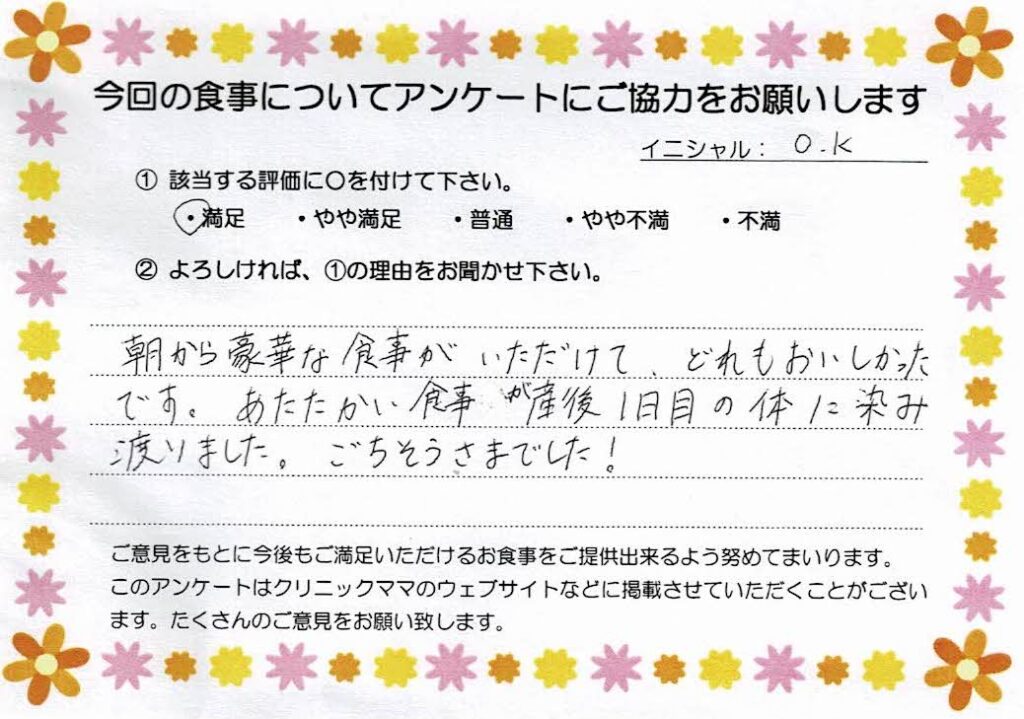 今回の食事についてアンケートにご協力をお願いします
イニシャル： O.K
① 該当する評価に〇を付けて下さい。
・満足 ・やや満足 ・普通 ・やや不満 ・不満
② よろしければ、①の理由をお聞かせ下さい。
朝から豪華な食事がいただけて、どれもおいしかった
です。あたたかい食事が産後1日目の体に染み
渡りました。ごちそうさまでした！
ご意見をもとに今後もご満足いただけるお食事をご提供出来るよう努めてまいります。
このアンケートはクリニックママのウェブサイトなどに掲載させていただくことがござい
ます。たくさんのご意見をお願い致します。